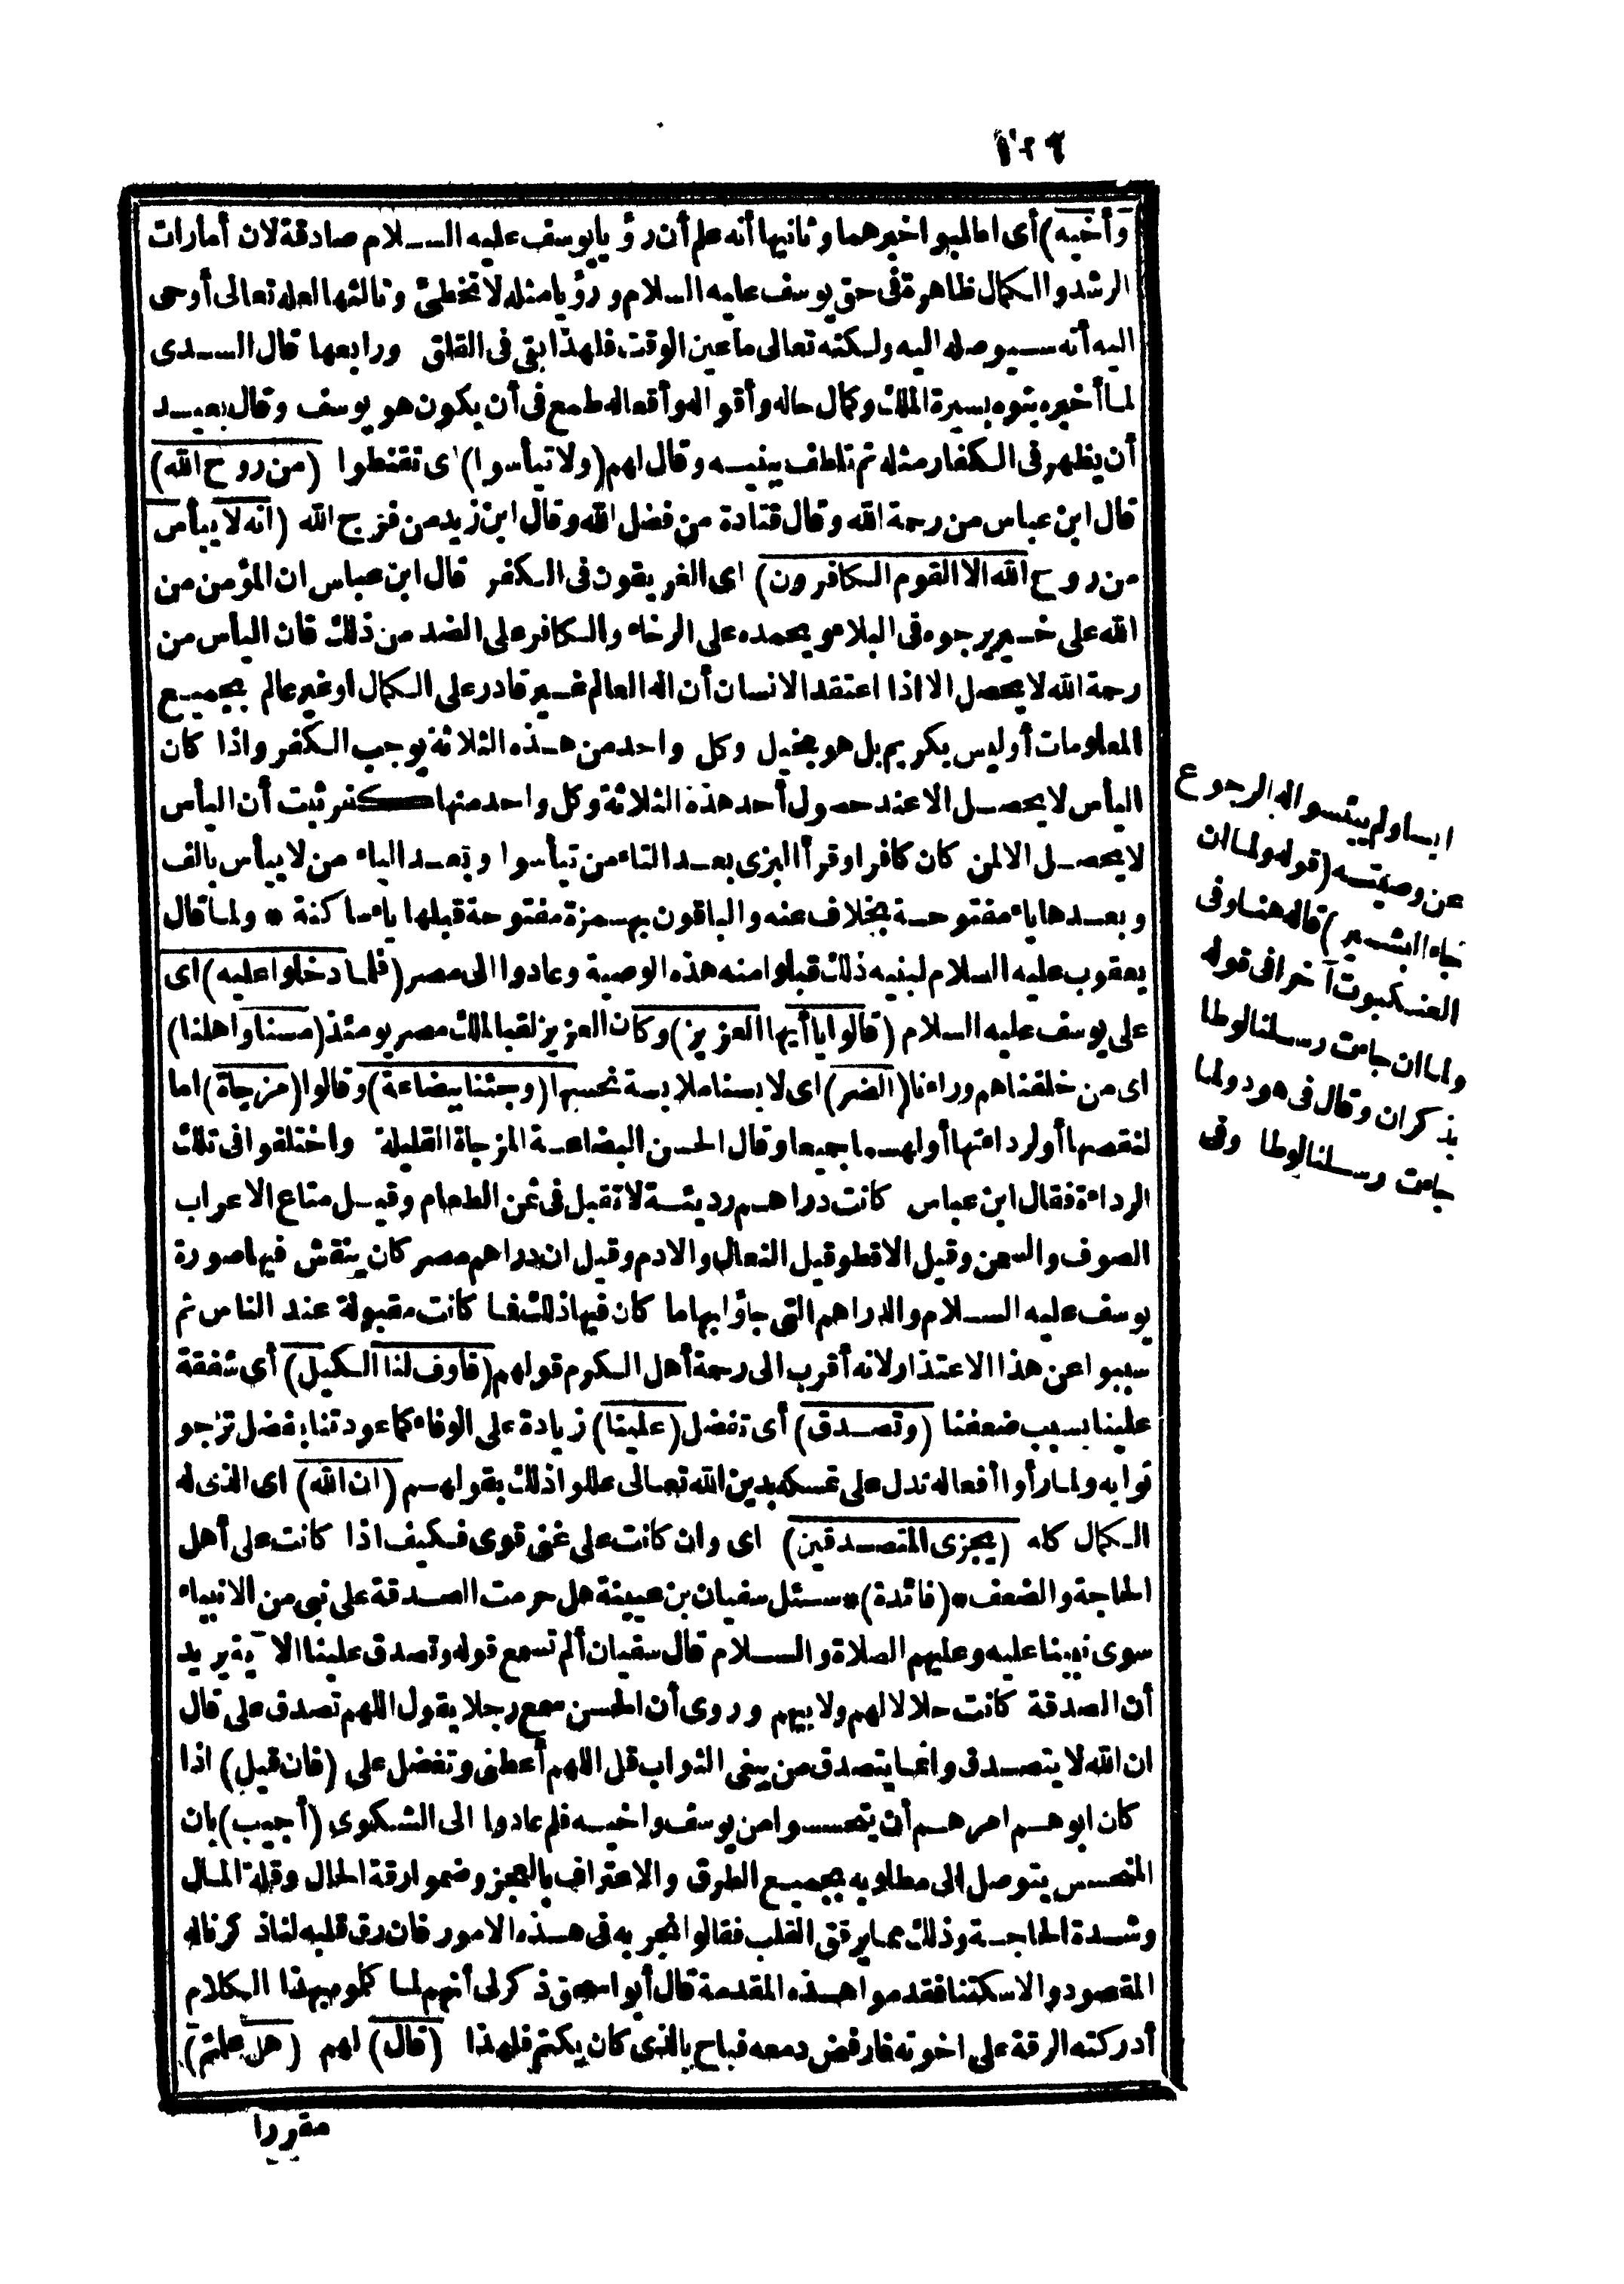 وأخيه) أى اطلبوا خبرهما وثانيها أنه علم أن رؤيا يوسف عليه السلام صادقة لان أمارات
الرشد والكمال ظاهرة فى حق يوسف عليه السلام ورؤيا مثله لا تخطئ وثالثها لعله تعالى أوحى
اليه أنه سيوصله اليه ولكنه تعالى ما عين الوقت فلهذا بقى فى القلق ورابعها قال السدى
لما أخبره بنوه بسيرة الملك وكمال حاله وأقواله وأفعاله طمع فى أن يكون هو يوسف وقال بعيد
أن يظهر فى الكفار مثله ثم تلطف ببنيه وقال لهم (ولا تيأسوا) اى تقنطوا (من روح الله)
قال ابن عباس من رحمة الله وقال قتادة من فضل الله وقال ابن زيد من فرج الله (انه لا ييأس
من روح الله الا القوم الكافرون) اى الغريقون فى الكفر قال ابن عباس ان المؤمن من
الله على خير يرجوه فى البلاء ويحمده على الرخاء والكافر على الضد من ذلك فان اليأس من
رحمة الله لا يحصل الا اذا اعتقد الانسان أن اله العالم غير قادر على الكمال او غير عالم بجميع
المعلومات أوليس بكريم بل هو بخيل وكل واحد من هذه الثلاثة يوجب الكفر واذا كان
اليأس لا يحصل الا عند حصول أحد هذه الثلاثة وكل واحد منها كفر ثبت أن اليأس
لا يحصل الا لمن كان كافرا وقرأ البزى بعد التاء من تيأسوا وبعد الياء من لا ييأس بالف
وبعدها ياء مفتوحة بخلاف عنه والباقون بهمزة مفتوحة قبلها ياء ساكنة * ولما قال
يعقوب عليه السلام لبنيه ذلك قبلوا منه هذه الوصية وعادوا الى مصر (فلما دخلوا عليه) اى
على يوسف عليه السلام (قالوا يا أيها العزيز) وكان العزيز لقبا لملك مصر يومئذ (مسنا واهلنا)
اى من خلفناهم وراءنا (الضر) اى لابسنا ملابسة نحسها (وجئنا ببضاعة) وقالوا (مزجاة) اما
لنقصها أو لرداءتها أو لهما جميعا وقال الحسن البضاعة المزجاة القليلة واختلفوا فى تلك
الرداءة فقال ابن عباس كانت دراهم رديئة لا تقبل فى ثمن الطعام وقيل متاع الاعراب
الصوف والسمن وقيل الاقط وقيل النعال والادم وقيل ان دراهم مصر كان ينقش فيها صورة
يوسف عليه السلام والدراهم التى جاؤا بها ما كان فيها ذلك فما كانت مقبولة عند الناس ثم
سببوا عن هذا الاعتذار لانه أقرب الى رحمة أهل الكرم قولهم (فاوف لنا الكيل) أى شفقة
علينا بسبب ضعفنا (وتصدق) أى تفضل (علينا) زيادة على الوفاء كما عودتنا بفضل ترجو
ثوابه ولما رأوا أفعاله تدل على تمسكه بدين الله تعالى عللوا ذلك بقولهم (ان الله) اى الذى له
الكمال كله (يجزى المتصدقين) اى وان كانت على غنى قوى فكيف اذا كانت على أهل
الحاجة والضعف * (فائدة) * سئل سفيان بن عيينة هل حرمت الصدقة على نبى من الانبياء
سوى نبينا عليه وعليهم الصلاة والسلام قال سفيان ألم تسمع قوله وتصدق علينا الآية يريد
أن الصدقة كانت حلالا لهم ولابيهم وروى أن الحسن سمع رجلا يقول اللهم تصدق على قال
ان الله لا يتصدق وانما يتصدق من يبغى الثواب قل اللهم أعطنى وتفضل على (فان قيل) اذا
كان ابوهم امرهم أن يتحسسوا من يوسف واخيه فلم عادوا الى الشكوى (أجيب) بان
المتحسس يتوصل الى مطلوبه بجميع الطرق والاعتراف بالعجز وضموا رقة الحال وقلة المال
وشدة الحاجة وذلك مما يرقق القلب فقالوا نجربه فى هذه الامور فان رق قلبه لنا ذكرنا له
المقصود والا سكتنا فقدموا هذه المقدمة قال أبو اسحق ذكر لى أنهم لما كلموه بهذا الكلام
أدركته الرقة على اخوته فارفض دمعه فباح بالذى كان يكتم فلهذا (قال) لهم (هل علمتم)
مقررا
ايسا ولم ييئسوا اله الرجوع
عن وصيته (قوله ولما ان
جاء البشير) قاله هنا وفى
العنكبوت آخرا فى قوله
ولما ان جاءت رسلنا لوطا
بذكر ان وقال فى هود ولما
جاءت رسلنا لوطا وفى